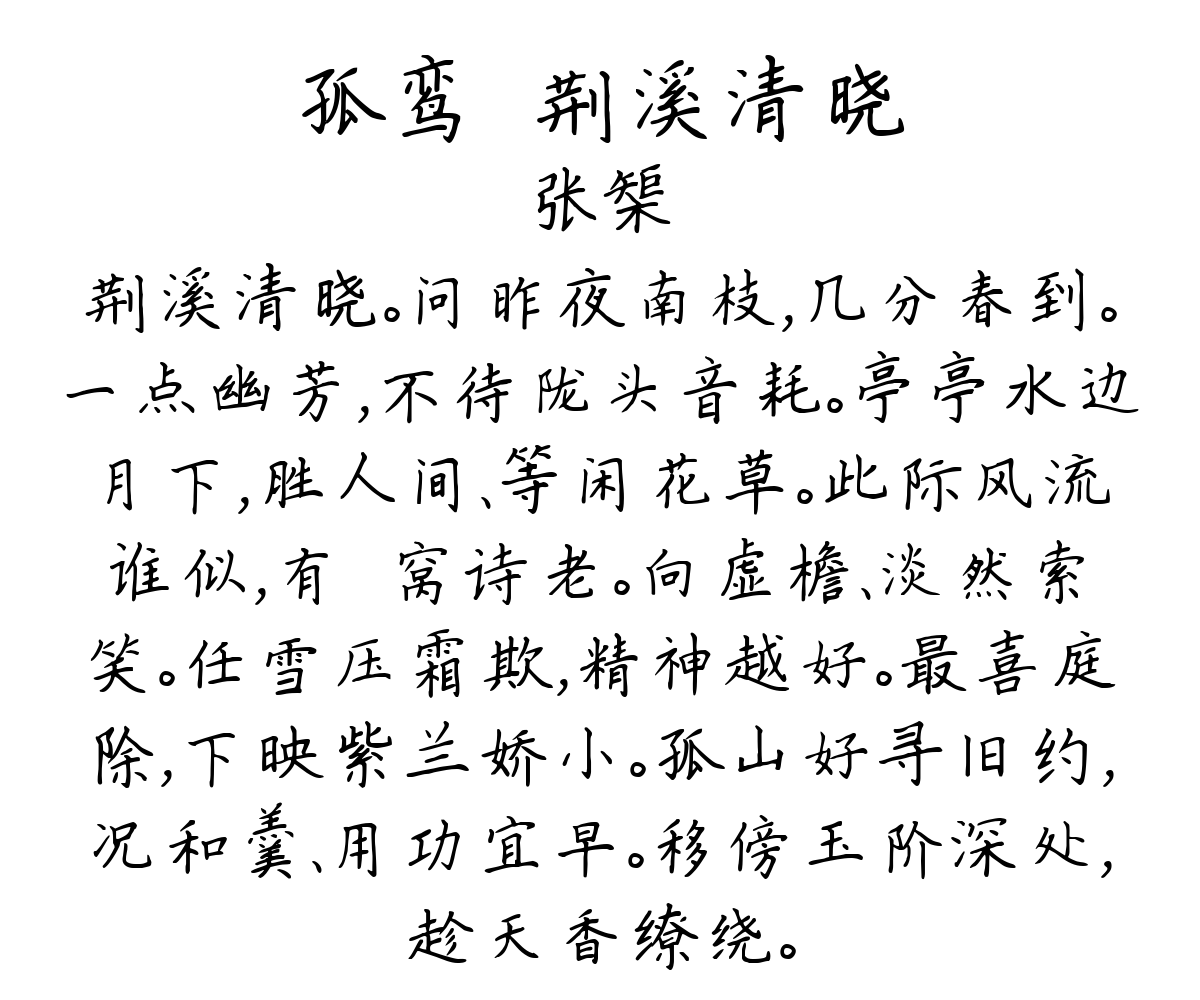 孤鸾 荆溪清晓
张榘
荆溪清晓。问昨夜南枝,几分春到。
一点幽芳,不待陇头音耗。亭亭水边
月下,胜人间、等闲花草。此际风流
谁似,有 窝诗老。向虚檐、淡然索
笑。任雪压霜欺,精神越好。最喜庭
除,下映紫兰娇小。孤山好寻旧约,
况和羹、用功宜早。移傍玉阶深处,
趁天香缭绕。